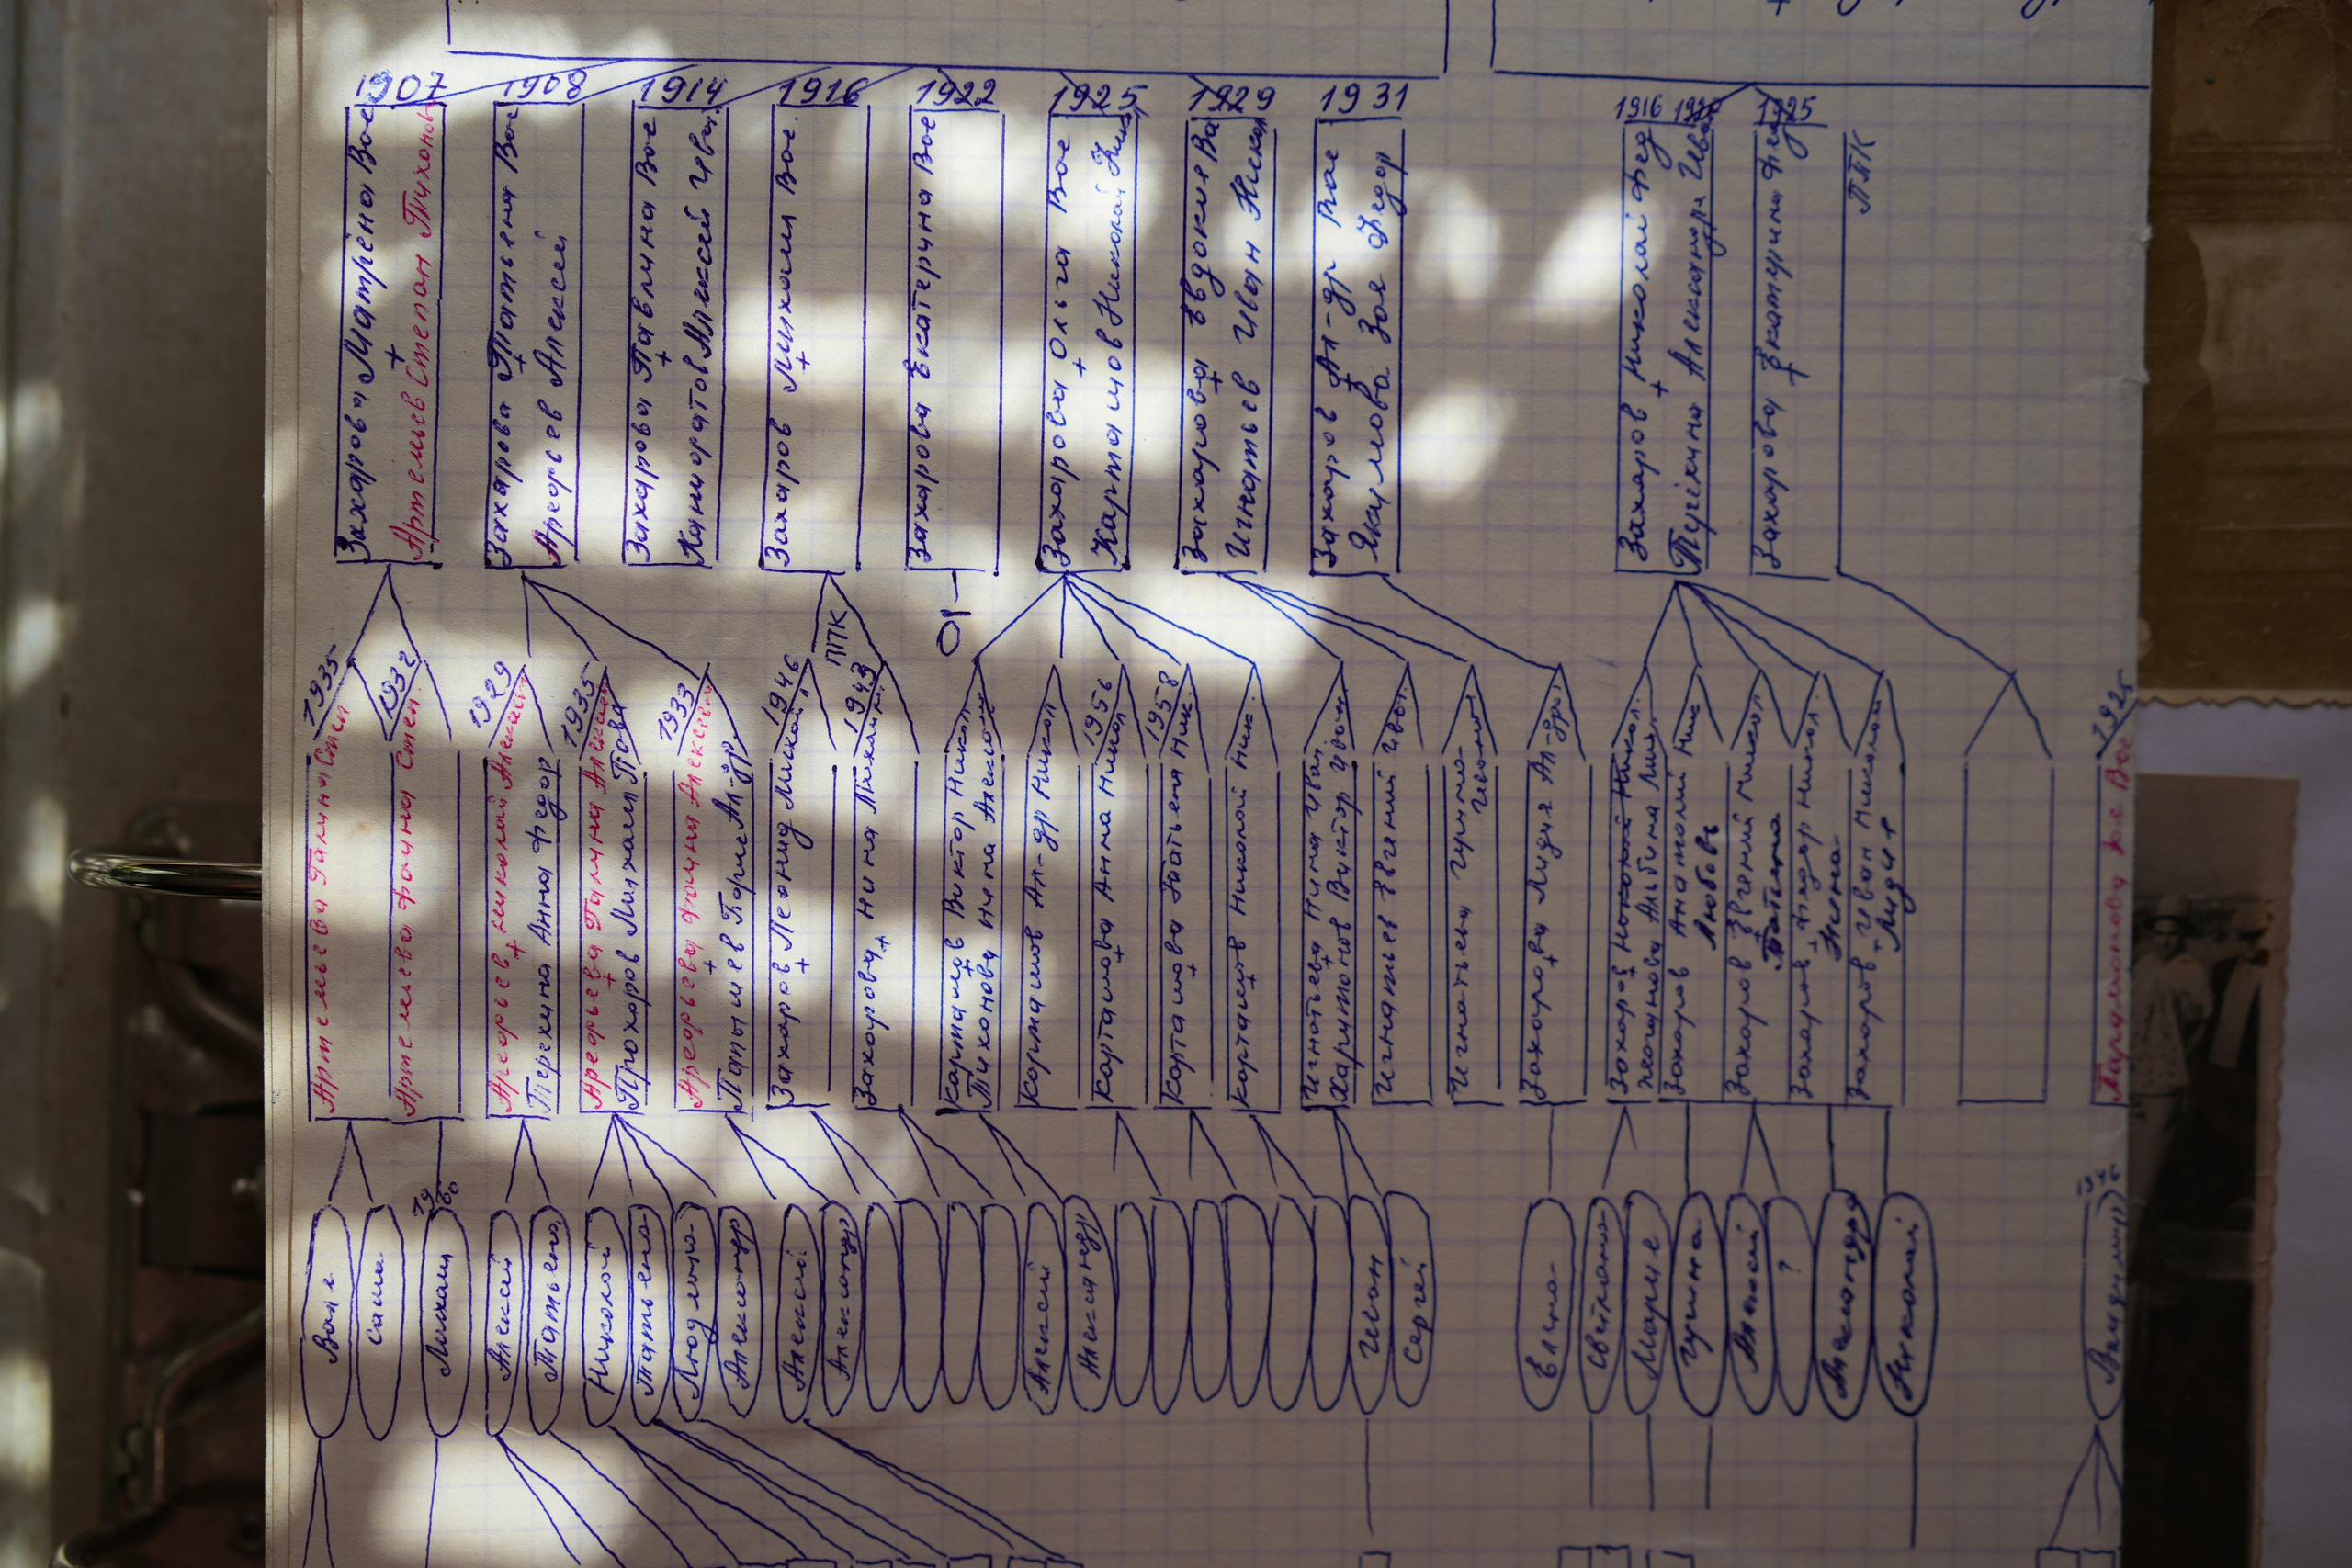 1907
Захарова Матрёна Вас
+
Артемьев Степан Тихонов
1908
Захарова Татьяна Вас
+
Алексей
1914
Захарова Павлина Вас
+
Алексей Иван
1916
Захаров Михаил Вас.
+
1922
Захарова Екатерина Вас
1925
Захарова Ольга Вас
+
Карташов Николай
1929
Захарова Евдокия Ва
+
Игнатьев Иван Никол
1931
Захаров Ал-др Вас
+
Зоя Федор
1916
Захаров Николай Фед
+
Терёхина Александра Иван
1925
Захарова Екатерина Фед
+
ППК
ППК
1935
Артемьева Галина Степ
1932
Артемьева Фаина Степ.
1929
Николай Алексеев
+
Терехина Анна Федор
1935
Галина Алексеев
+
Прохоров Михаил Павл
1933
Фаина Алексеев
+
Борис Ал-др.
1946
Захаров Леонид Михайл
+
1943
Захарова Нина Михайл.
+
Карташов Виктор Никол
+
Тихонова Нина Алексан
Карташов Ал-др Никол
1956
Карташова Анна Никол
+
1958
Карташова Татьяна Ник.
+
Карташов Николай Ник.
+
Игнатьева Нина Иван
+
Харитонов Виктор Иван
Игнатьев Евгений Иван.
Игнатьева
Захарова Лидия Ал-др.
+
Захаров Никол.
+
Альбина
Захаров Анатолий Ник
Любовь
Захаров Евгений Никол
+
Татьяна
Захаров Федор Никол.
+
Нина
Захаров Иван Николай
+
Лидия
1925
Парамонова Зоя Вас
Валя
Саша
1960
Михаил
Алексей
Татьяна
Николай
Татьяна
Людмила
Александр
Алексей
Александр
Алексей
Александр
Иван
Сергей
Елена
Светлана
Марие
Ирина
Алексей
?
Александр
Николай
Владимир